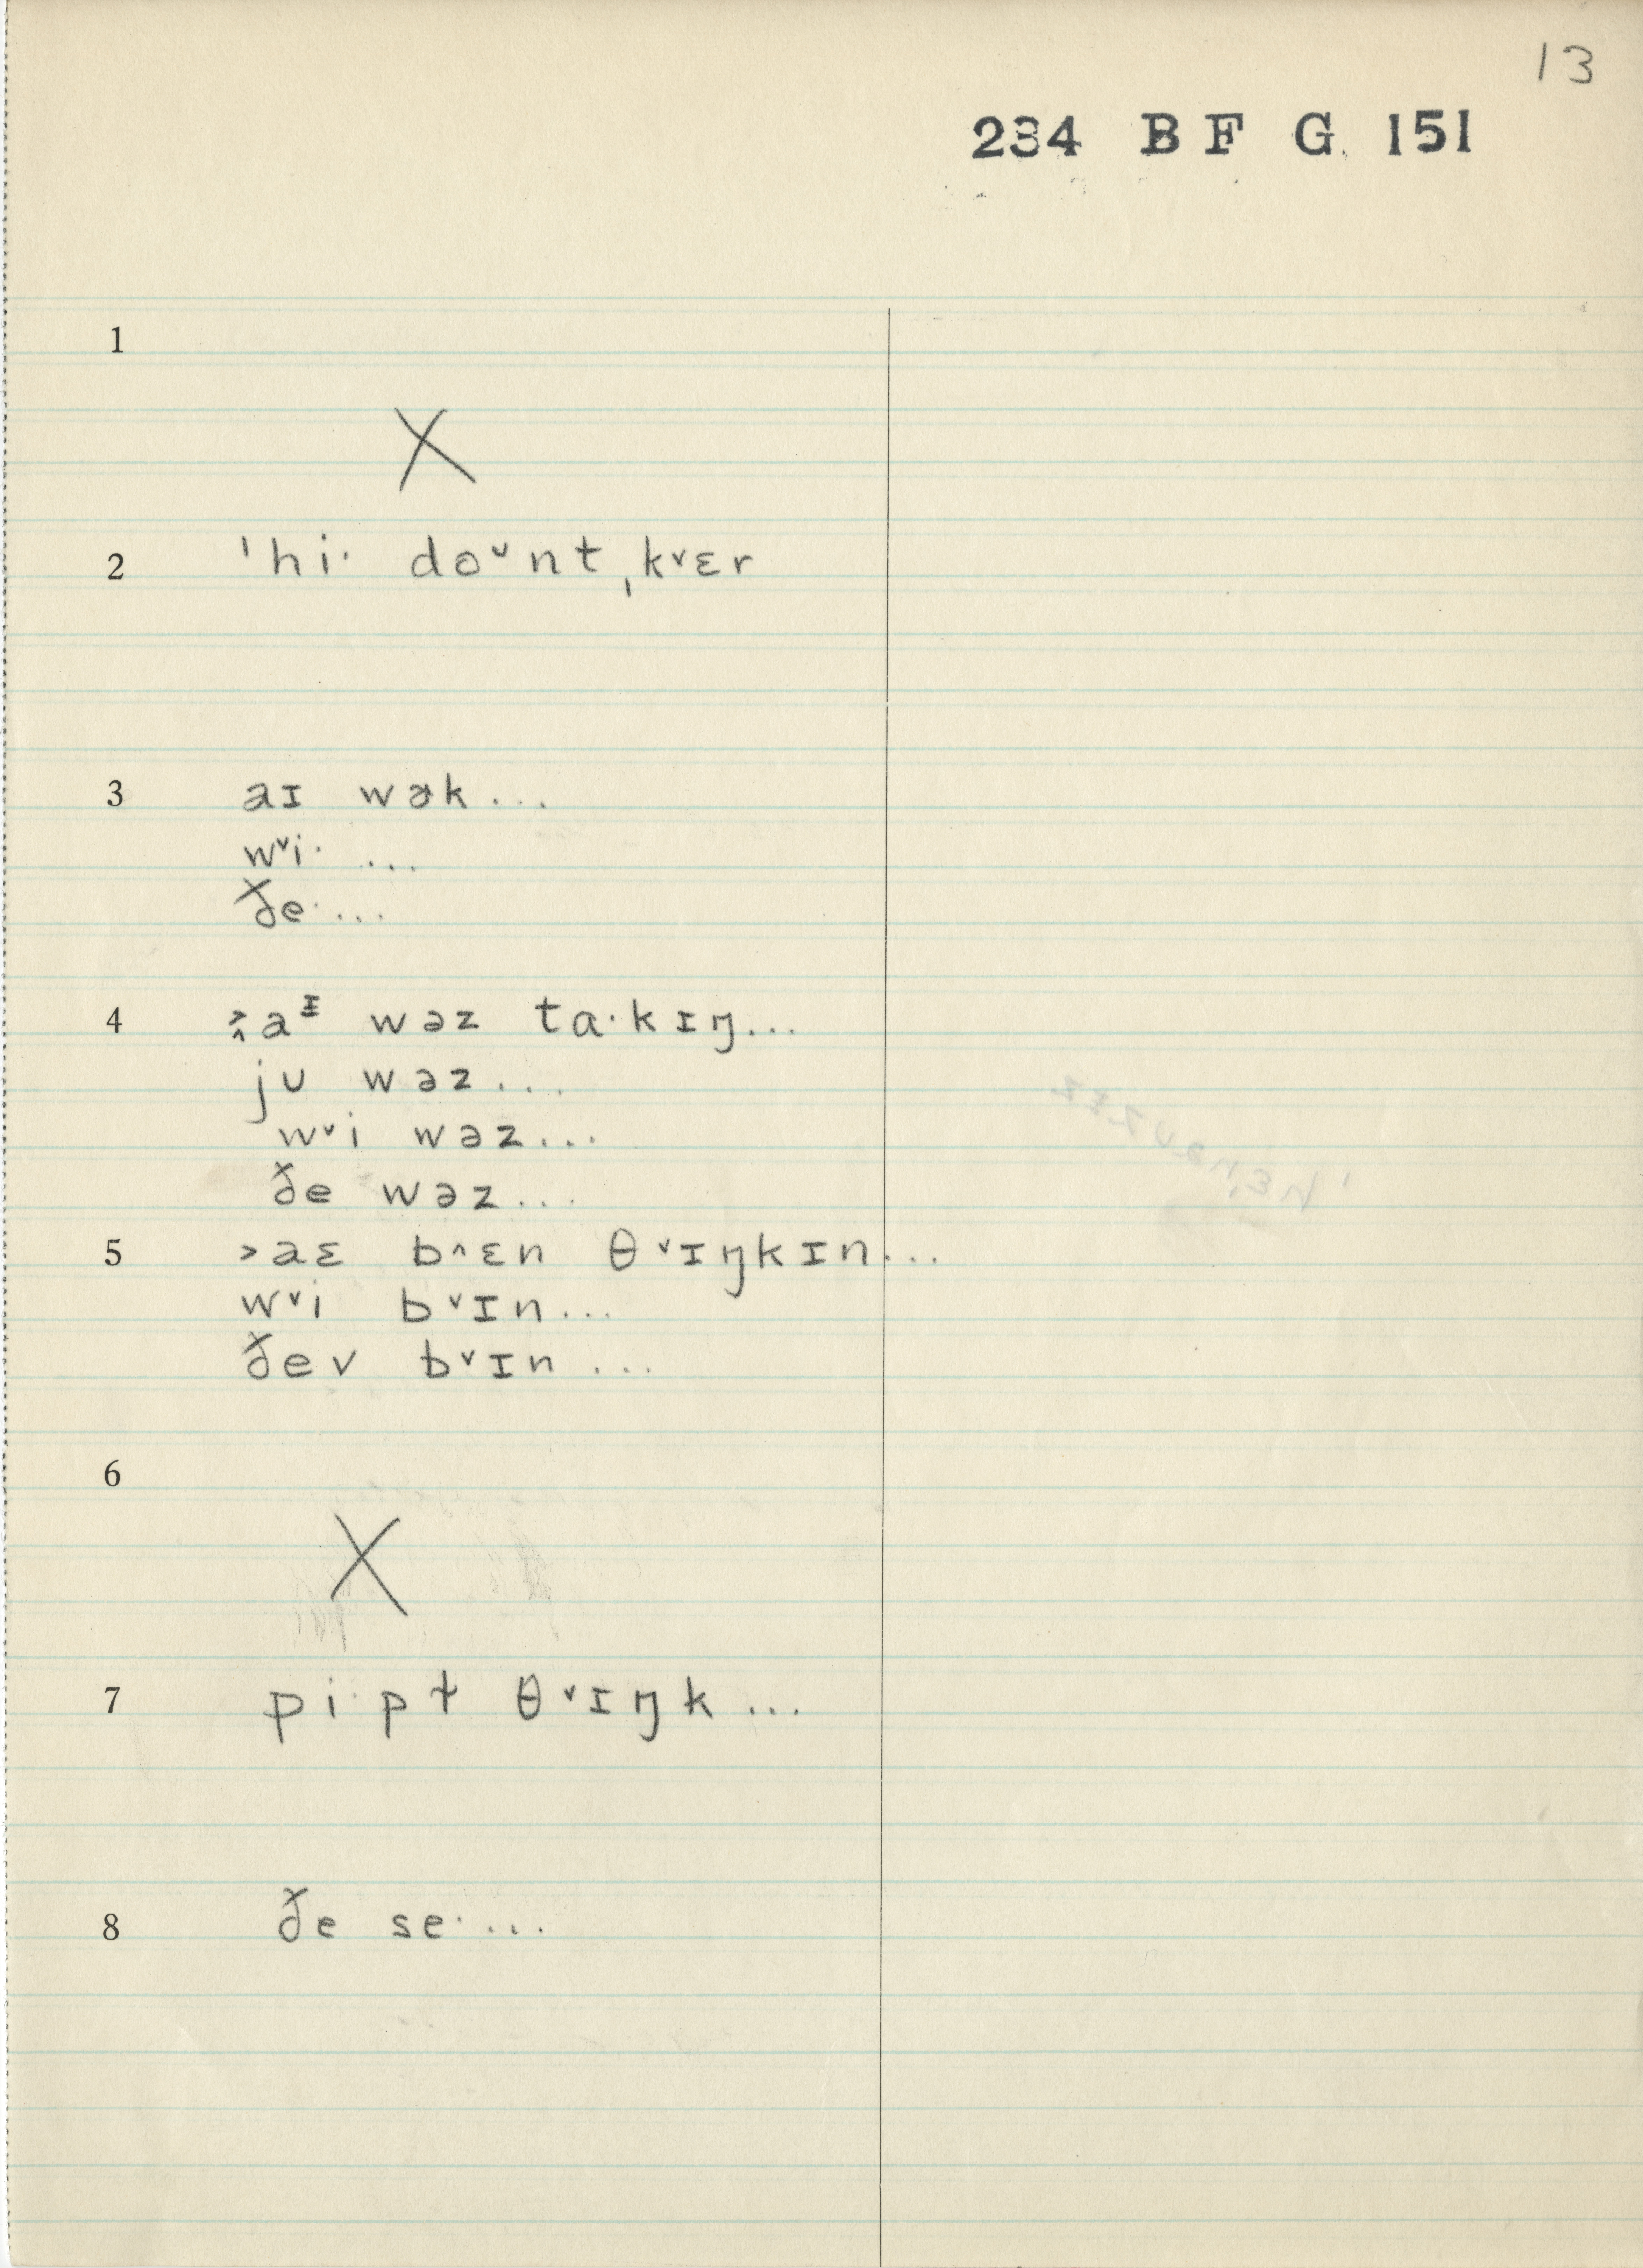 13
234 B F G 151
1
X
2 ˈhi· do˅nt ˌk˅ɛr
3 aɪ wɚk...
w˅i· ...
ðe· ...
4 a ͥ wəz ta·kɪŋ...
ju wəz...
w˅i wəz...
ðe wəz...
5 ˃aɛ b˄ɛn θ˅ɪŋkɪn...
w˅i b˅ɪn...
ðev b˅ɪn ...
6
X
7 pi·pɫ θ˅ɪŋk...
8 ðe se· ...